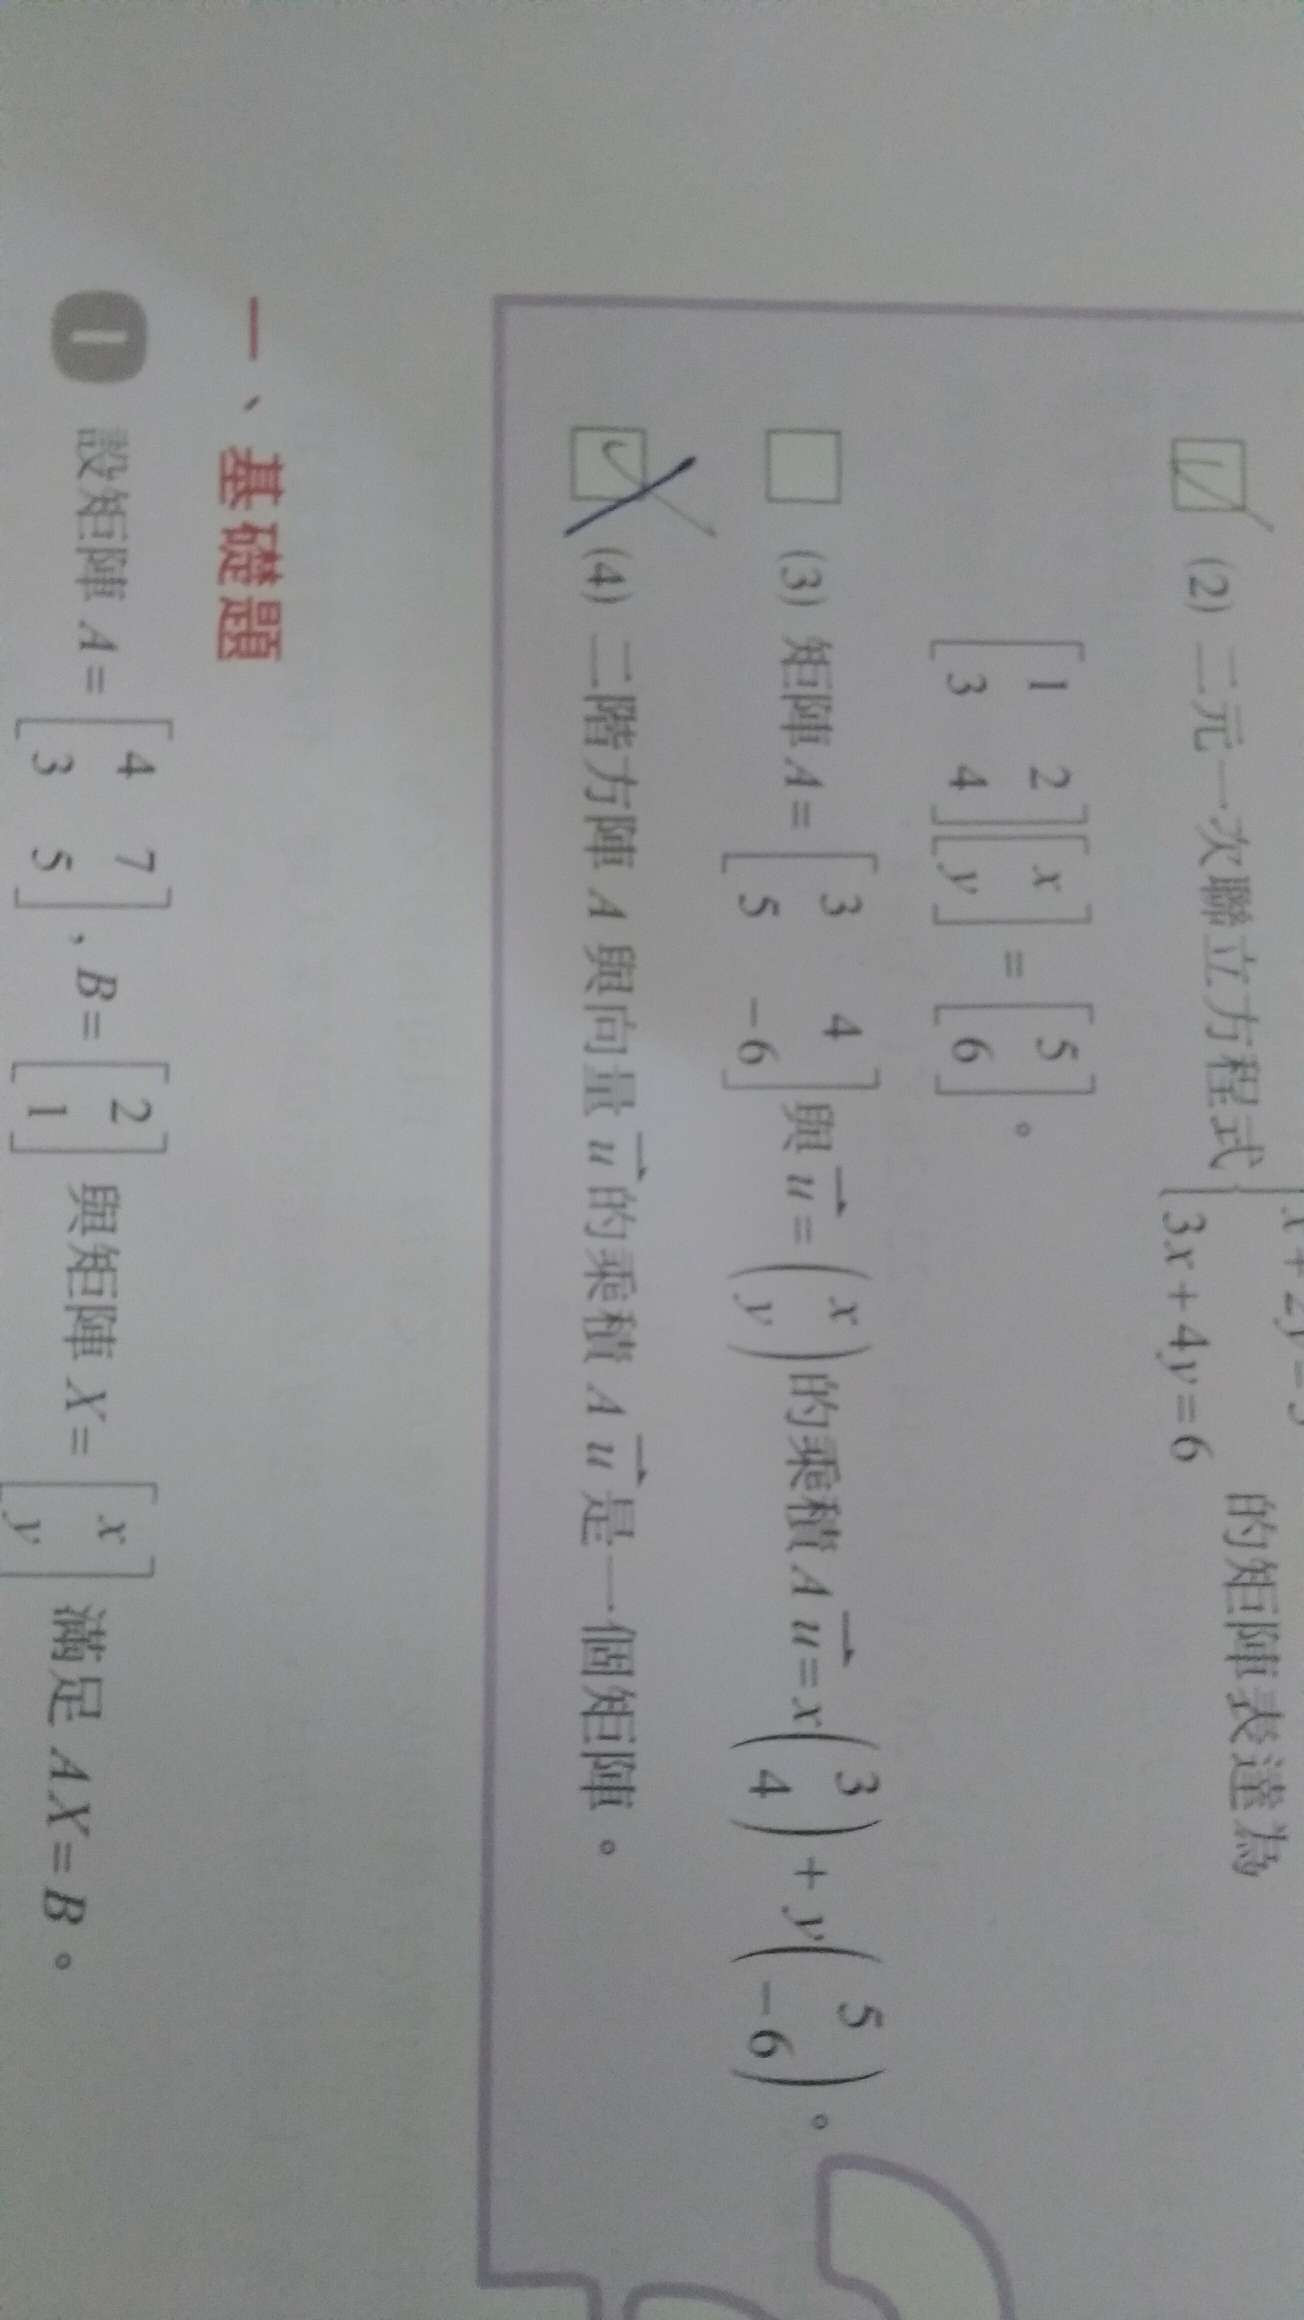 (2) 二元一次聯立方程式 { x+2y=5 的矩陣表達為
3x+4y=6
[1 2] [x] = [5]
[3 4] [y] [6] 。
(3) 矩陣 A= [3 4; 5 -6] 與 u= (x; y) 的乘積 A u=x(3; 4)+y(5; -6) 。
(4) 二階方陣 A 與向量 u 的乘積 A u 是一個矩陣。
一、基礎題
1 設矩陣 A= [4 7; 3 5] , B= [2; 1] 與矩陣 X= [x; y] 滿足 AX=B 。